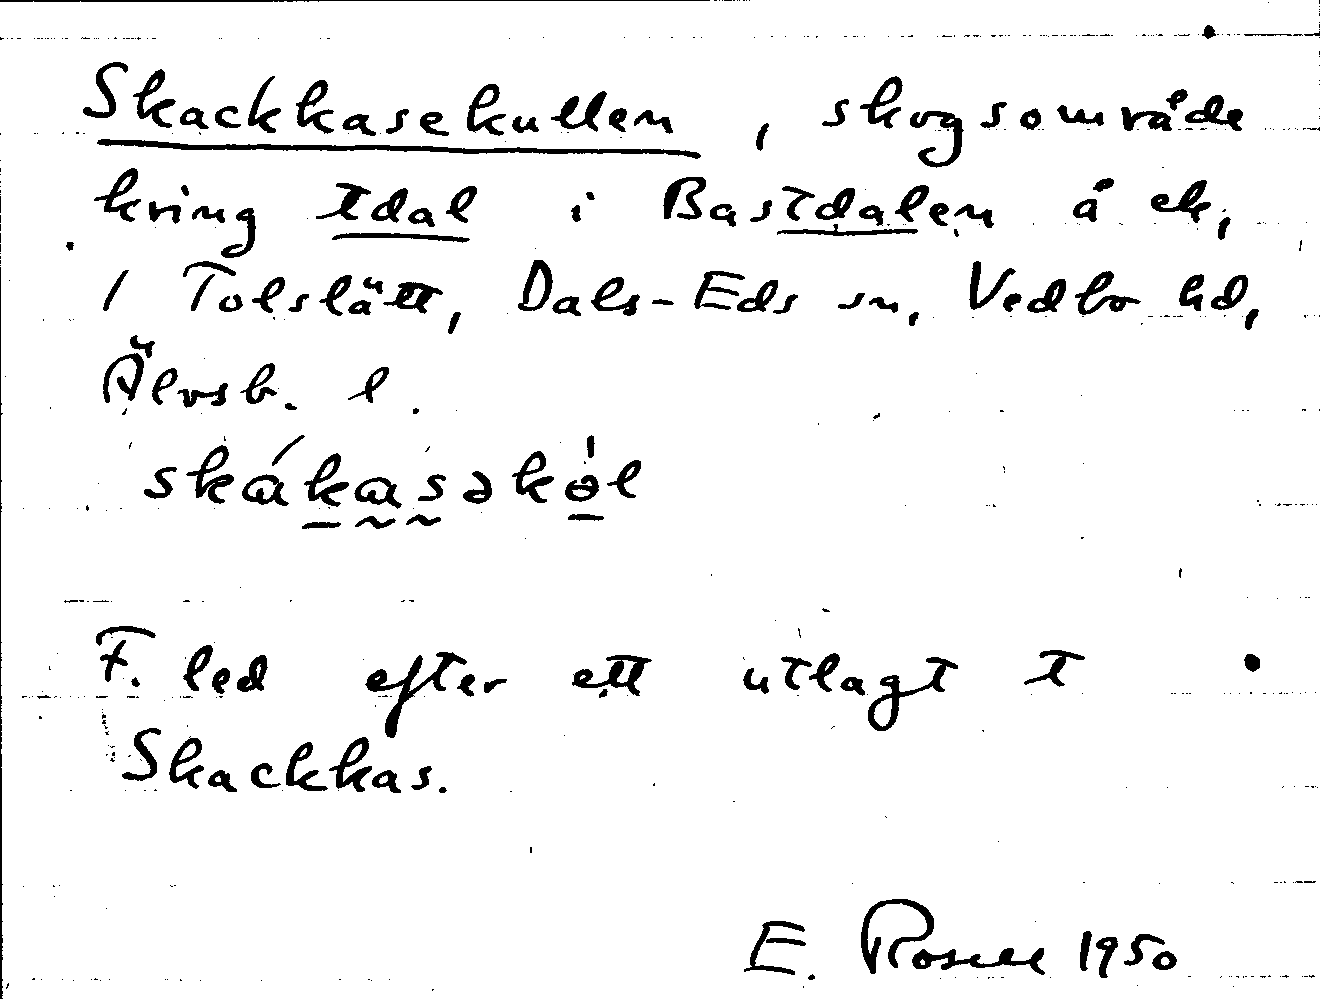 Skackkasekullen, skogsområde
kring tdal i Bastdalen å ek,
/ Tolslätt, Dals-Eds sn, Vedbo hd,
Älvsb. l.
skákasəkө̍l
F. led efter ett utlagt t
Skackkas.
E. Rosell 1950